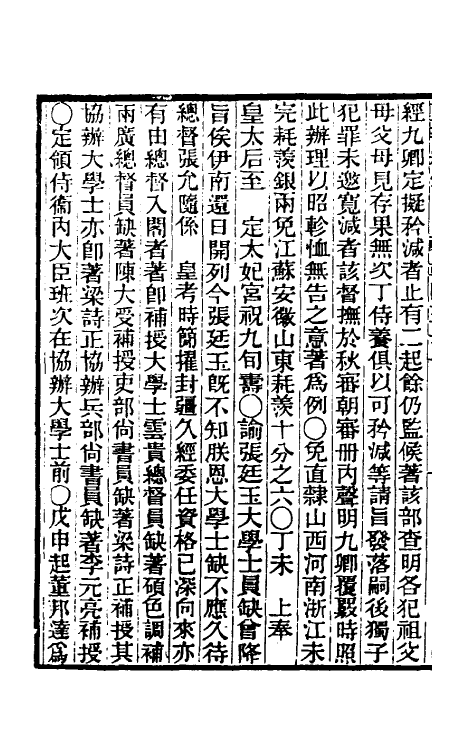 經九卿定擬矜減者止有一二起餘仍監候著該部查明各犯祖父
母父母見存果無次丁侍養俱以可矜減等請旨發落嗣後獨子
犯罪未邀寬減者該督撫於秋審朝審冊內聲明九卿覆覈時照
此辦理以昭軫恤無告之意著為例○免直隸山西河南浙江未
完耗羨銀兩免江蘇安徽山東耗羨十分之六○丁未　上奉
皇太后至　定太妃宮祝九旬壽○諭張廷玉大學士員缺曾降
旨俟伊南還日開列今張廷玉既不知朕恩大學士缺不應久待
總督張允隨係　皇考時簡擢封疆久經委任資格已深向來亦
有由總督入閣者著即補授大學士雲貴總督員缺著碩色調補
兩廣總督員缺著陳大受補授吏部尚書員缺著梁詩正補授其
協辦大學士亦即著梁詩正協辦兵部尚書員缺著李元亮補授
○定領侍衛內大臣班次在協辦大學士前○戊申起董邦達為